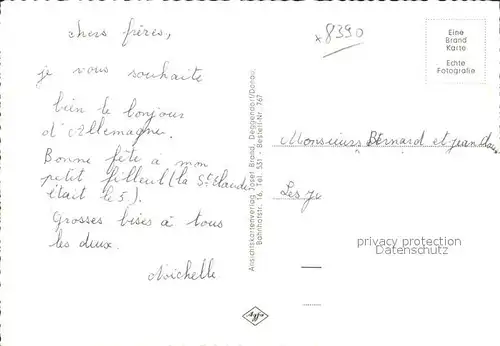 chers frères,
je vous souhaite
bien le bonjour
d'Allemagne.
Bonne fête à mon
petit filleul (la St Claude
était le 5).
Grosses bises à tous
les deux.
Michelle
x 8390
Eine
Brand
Karte
Echte
Fotografie
Ansichtskartenverlag Josef Brand, Deggendorf/Donau,
Bahnhofstr. 16, Tel. 531 - Bestell-Nr. 767
Monsieurs Bernard et jean
Les
privacy protection
Datenschutz
Agfa